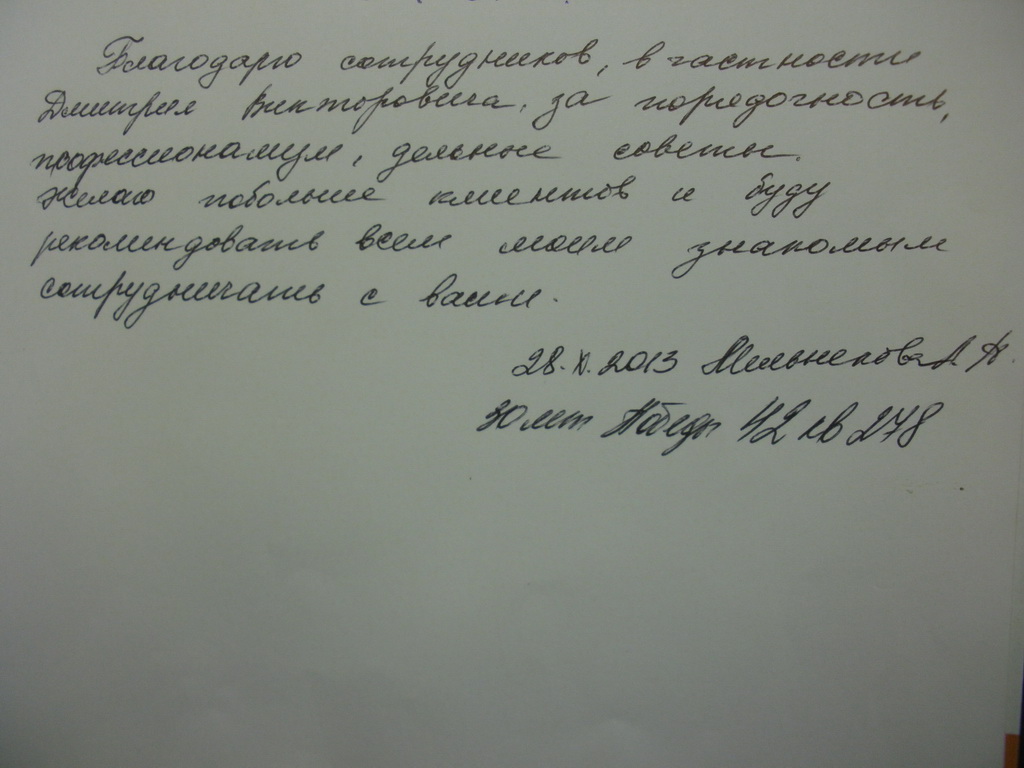 Благодарю сотрудников, в частности
Дмитрия Викторовича, за порядочность,
профессионализм, дельные советы.
Желаю побольше клиентов и буду
рекомендовать всем моим знакомым
сотрудничать с вами.
28.XI.2013 Мельникова А.Н.
30 лет Победы 42 кв 278